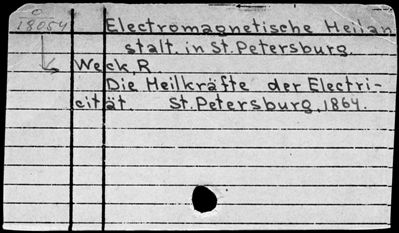 O
18054
Electromagnetische Heilan
stalt in St. Petersburg.
Weck, R
Die Heilkräfte der Electri-
cität. St. Petersburg, 1864.